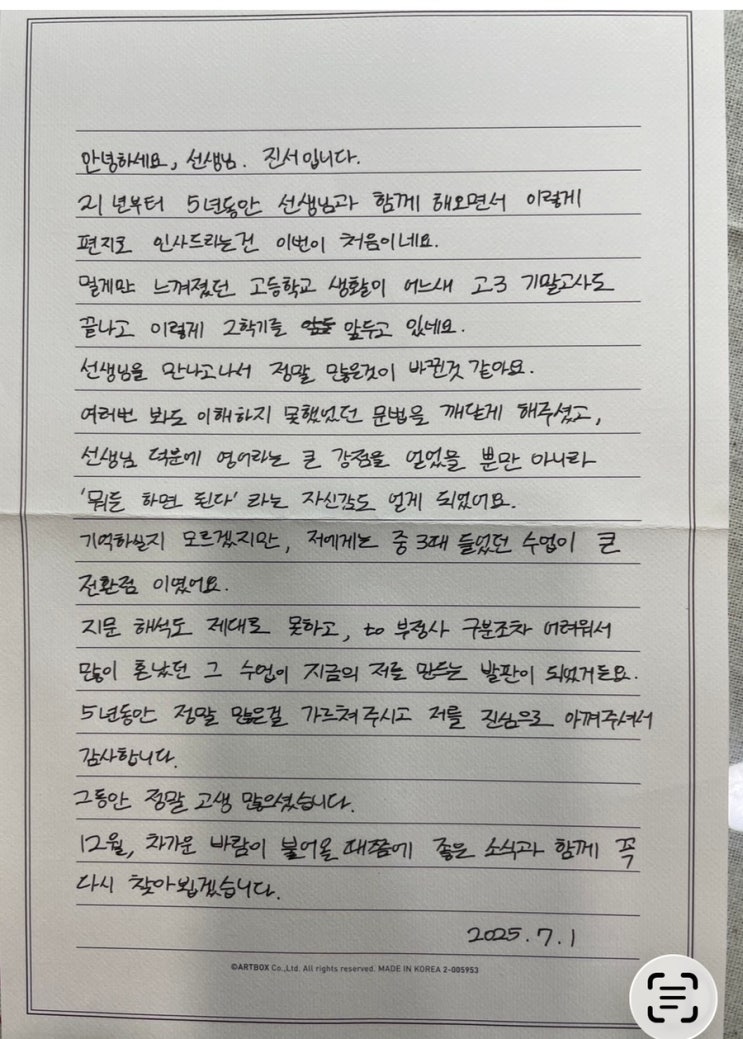 안녕하세요, 선생님. 진서입니다.
21년부터 5년동안 선생님과 함께 해오면서 이렇게
편지로 인사드리는건 이번이 처음이네요.
멀게만 느껴졌던 고등학교 생활이 어느새 고3 기말고사도
끝나고 이렇게 2학기를 앞두고 있네요.
선생님을 만나고나서 정말 많은것이 바뀐것 같아요.
여러번 봐도 이해하지 못했었던 문법을 깨닫게 해주셨고,
선생님 덕분에 영어라는 큰 강점을 얻었을 뿐만 아니라
'뭐든 하면 된다' 라는 자신감도 얻게 되었어요.
기억하실지 모르겠지만, 저에게는 중3때 들었던 수업이 큰
전환점 이였어요.
지문 해석도 제대로 못하고, to 부정사 구분조차 어려워서
많이 혼났던 그 수업이 지금의 저를 만드는 발판이 되었거든요.
5년동안 정말 많은걸 가르쳐주시고 저를 진심으로 아껴주셔서
감사합니다.
그동안 정말 고생 많으셨습니다.
12월, 차가운 바람이 불어올 때쯤에 좋은 소식과 함께 꼭
다시 찾아뵙겠습니다.
2025.7.1
©ARTBOX Co.,Ltd. All rights reserved. MADE IN KOREA 2-005953